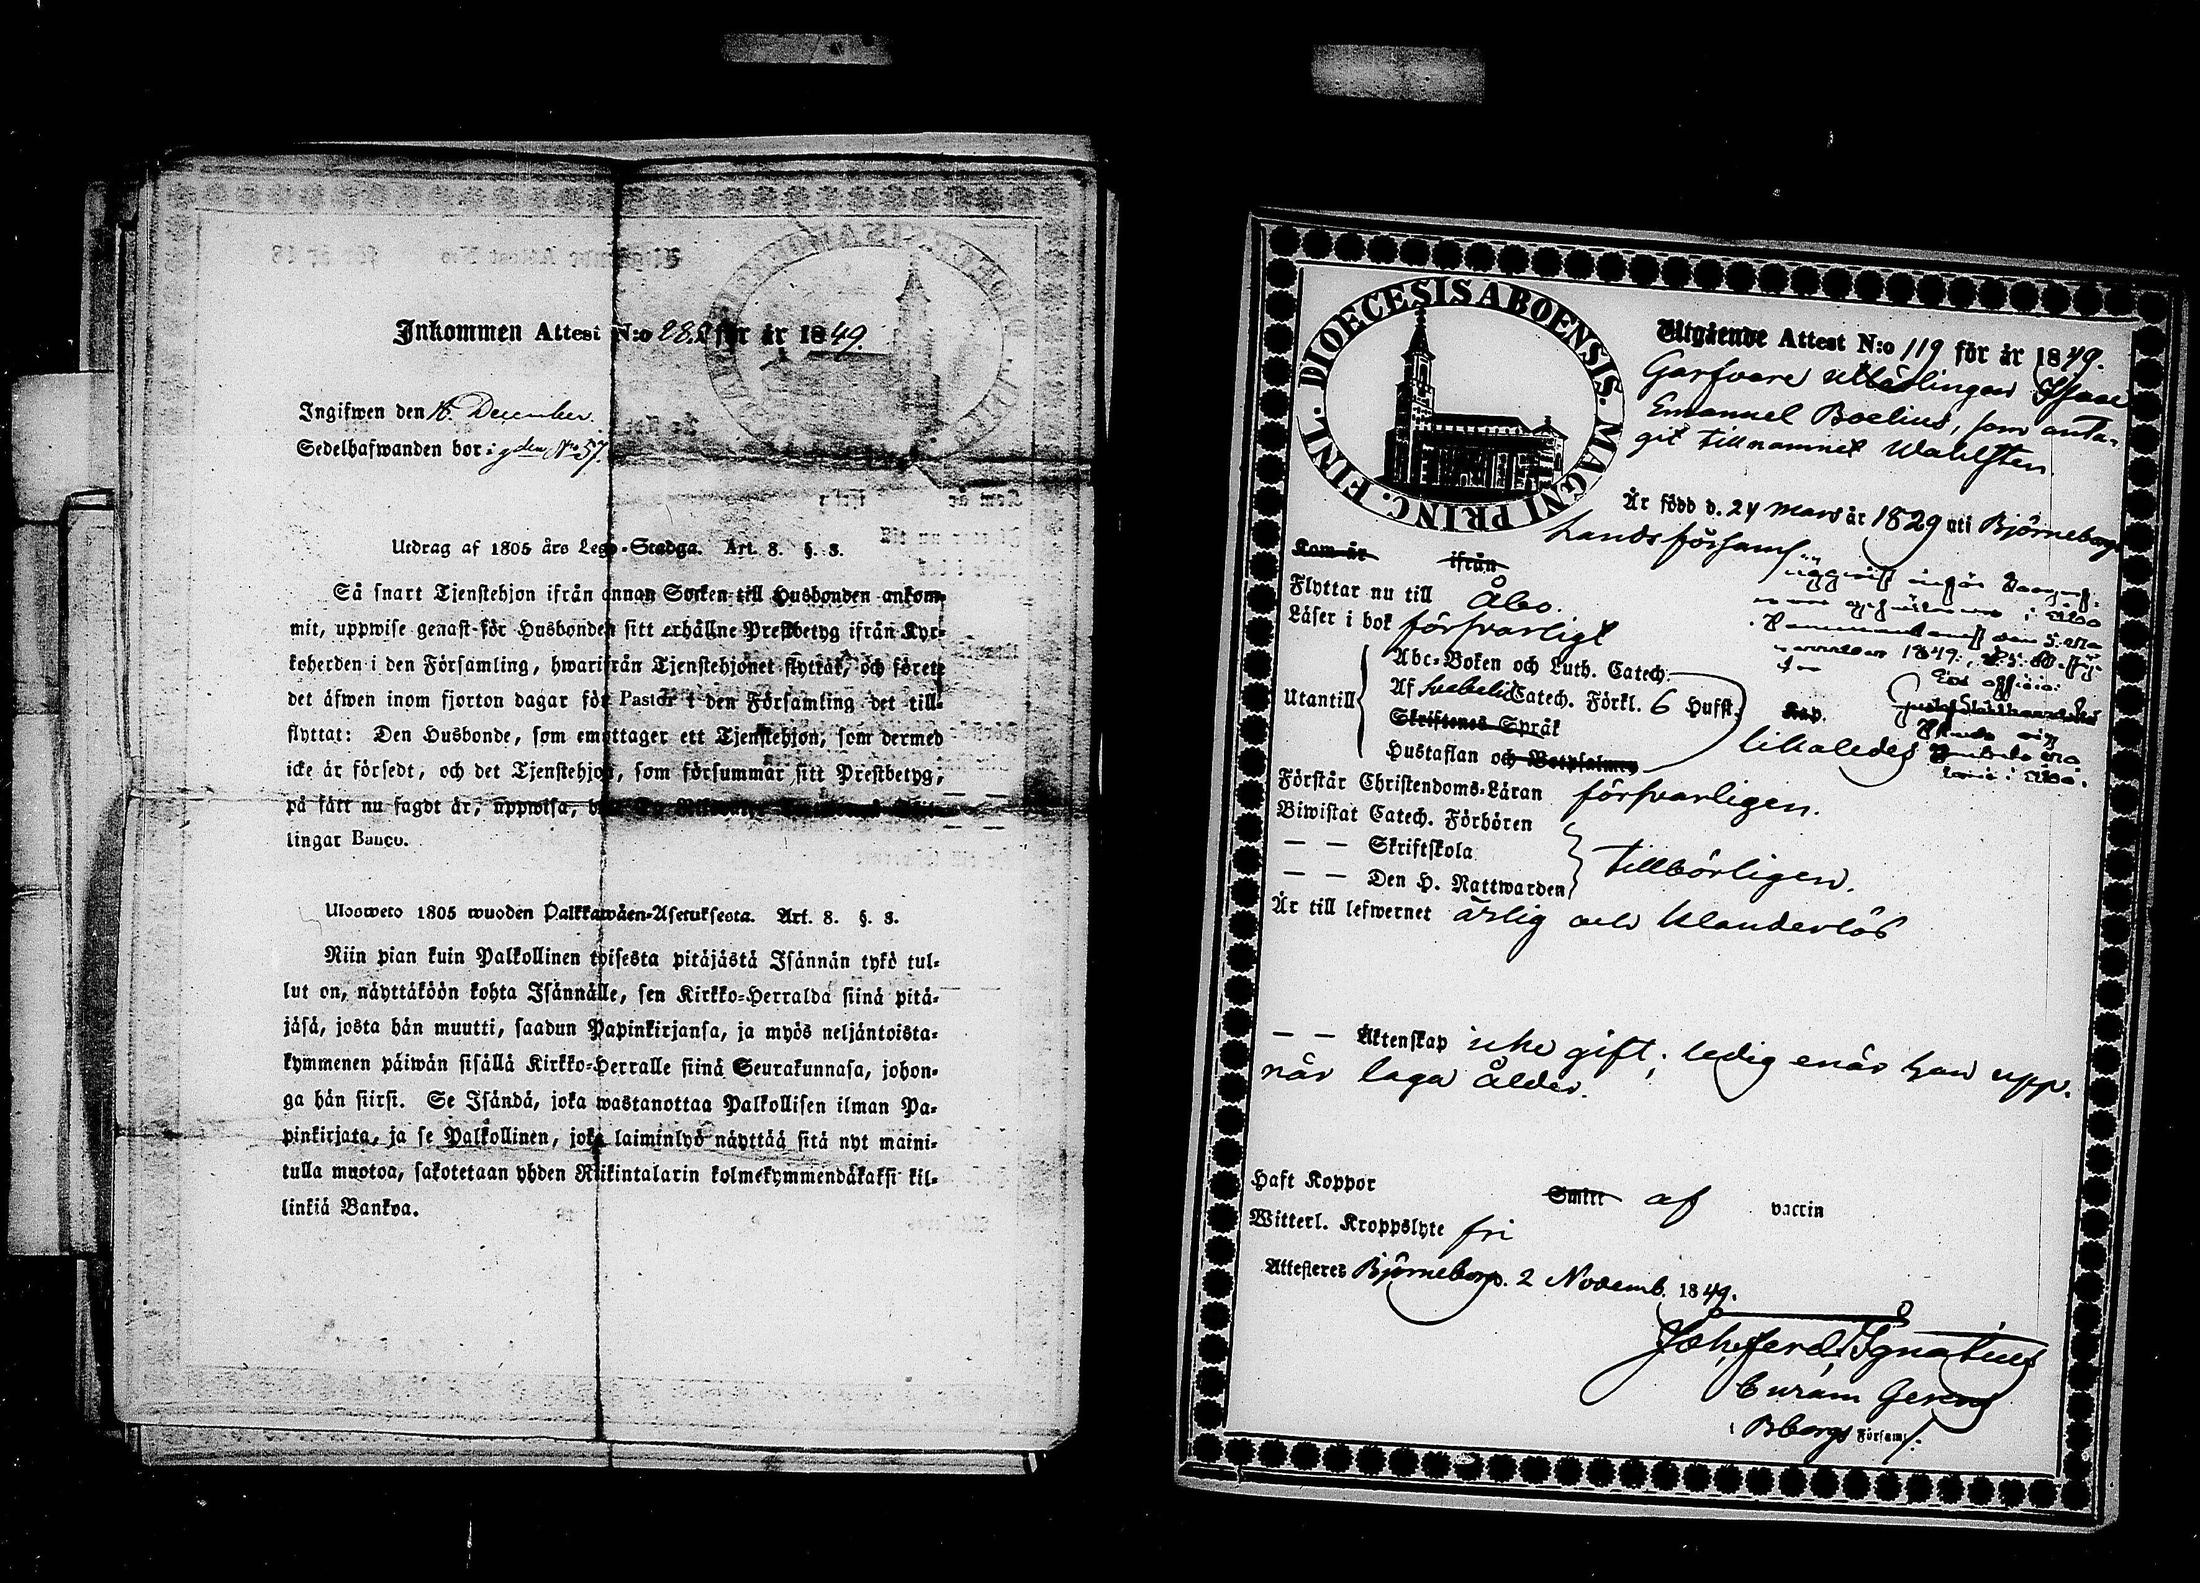 Inkommen Attest N:o 282 för år 1849.
Ingifwen den 16. December.
Sedelhafwanden bor i gden No 57.
Utdrag af 1805 års Lego-Stadga. Art. 8. §. 8.
Så snart Tjenstehjon ifrån annan Socken till Husbonden ankom-
mit, uppwise genast för Husbonden sitt erhållne Prestbetyg ifrån Kyr-
koherden i den Församling, hwarifrån Tjenstehjonet flyttat, och förete
det äfwen inom fjorton dagar för Pastor i den Församling det till-
flyttat: Den Husbonde, som emottager ett Tjenstehjon, som dermed
icke är försedt, och det Tjenstehjon, som försummar sitt Prestbetyg,
på sätt nu sagdt är, uppwisa,
lingar Banco.
Ulosweto 1805 wuoden Palkkawäen-Asetuksesta. Art. 8. §. 8.
Niin pian kuin Palkollinen toisesta pitäjästä Isännän tykö tul-
lut on, näyttäköön kohta Isännälle, sen Kirkko-Herralda siinä pitä-
jäsä, josta hän muutti, saadun Papinkirjansa, ja myös neljäntoista-
kymmenen päiwän sisällä Kirkko-Herralle siinä Seurakunnasa, johon-
ga hän siirsi. Se Isändä, joka wastanottaa Palkollisen ilman Pa-
pinkirjata, ja se Palkollinen, joka laiminlyö näyttää sitä nyt maini-
tulla muotoa, sakotetaan yhden Riikintalarin kolmekymmendäkaksi kil-
linkiä Bankoa.
FINL. DIOECESIS ABOENSIS. MAGNI PRINC.
Utgående Attest N:o 119 för år 1849.
Garfvare lärlingen Isaac
Emanuel Boelius, som anta-
git tillnamnet Wahlsten
Är född d. 24 mars år 1829 uti Björneborgs
Landsförsaml.
Kom år ifrån
Flyttar nu till Åbo.
Läser i bok försvarligt
Utantill
Abc-Boken och Luth. Catech.
Af Svebelii Catech. Förkl. 6 Hufst. Kap.
Skriftenes Språk
Hustaflan och Botpsalmer
likaledes
Förstår Christendoms-Läran försvarligen.
Biwistat Catech. Förhören
— — Skriftskola
— — Den H. Nattwarden
tillbörligen.
Är till lefwernet ärlig och klanderlös
— — Äktenskap icke gift; ledig enär han upp-
når laga ålder.
Haft Koppor Smitt af vaccin
Witterl. Kroppslyte fri
Attesteres Björneborg d. 2 Novemb. 1849.
Joh. Ferd. Ignatius
Curam Gerens
i Bborgs Församl.